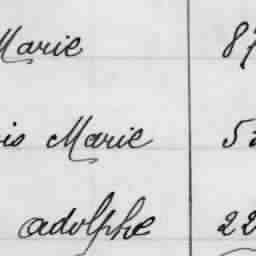 Marie 87
is Marie 5
adolphe 22